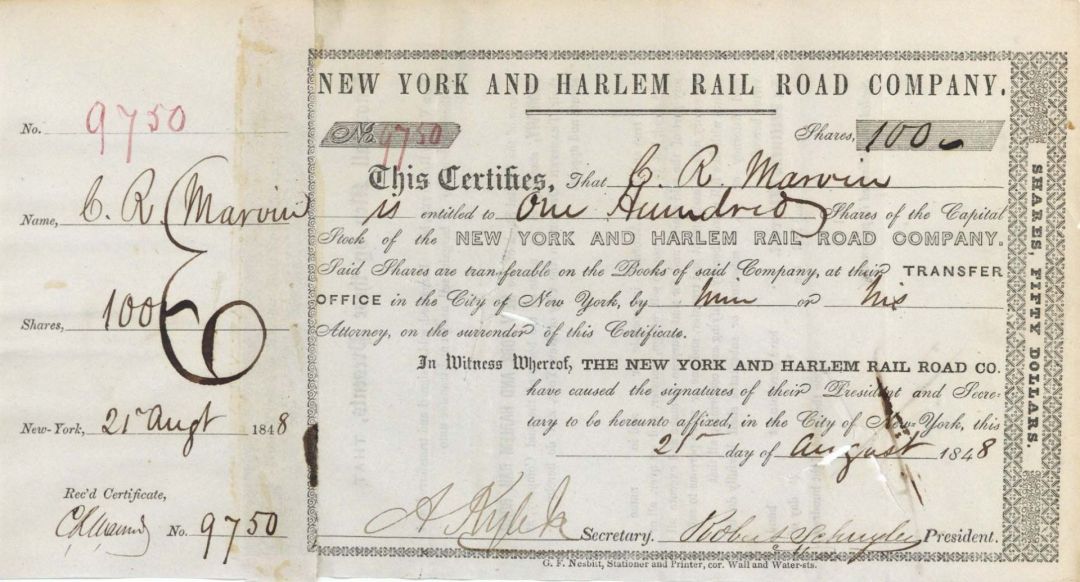 No. 9750
Name, C. R. Marvin
Shares, 100
New-York, 21st Augt 1848
Rec'd Certificate,
CRMarvin No. 9750
NEW YORK AND HARLEM RAIL ROAD COMPANY.
No. 9750 Shares, 100
This Certifies, That C. R. Marvin
is entitled to One Hundred Shares of the Capital
Stock of the NEW YORK AND HARLEM RAIL ROAD COMPANY.
Said Shares are transferable on the Books of said Company, at their TRANSFER
OFFICE in the City of New York, by him or his
Attorney, on the surrender of this Certificate.
In Witness Whereof, THE NEW YORK AND HARLEM RAIL ROAD CO.
have caused the signatures of their President and Secre-
tary to be hereunto affixed, in the City of New-York, this
21st day of August 1848
A Kyle Jr Secretary. Robert Schuyler President.
G. F. Nesbitt, Stationer and Printer, cor. Wall and Water-sts.
SHARES, FIFTY DOLLARS.